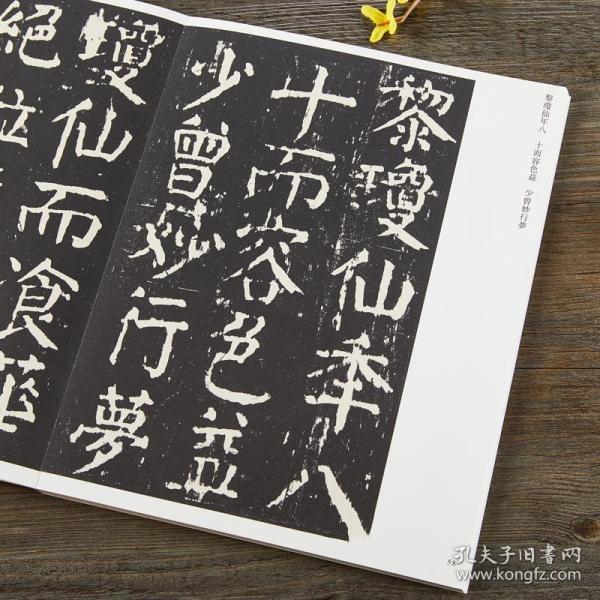 黎瓊仙年八
十而容色益
少曾妙行夢
瓊仙而飡華
絕粒
黎瓊仙年八　十而容色益　少曾妙行夢
58
孔夫子旧书网
www.kongfz.com